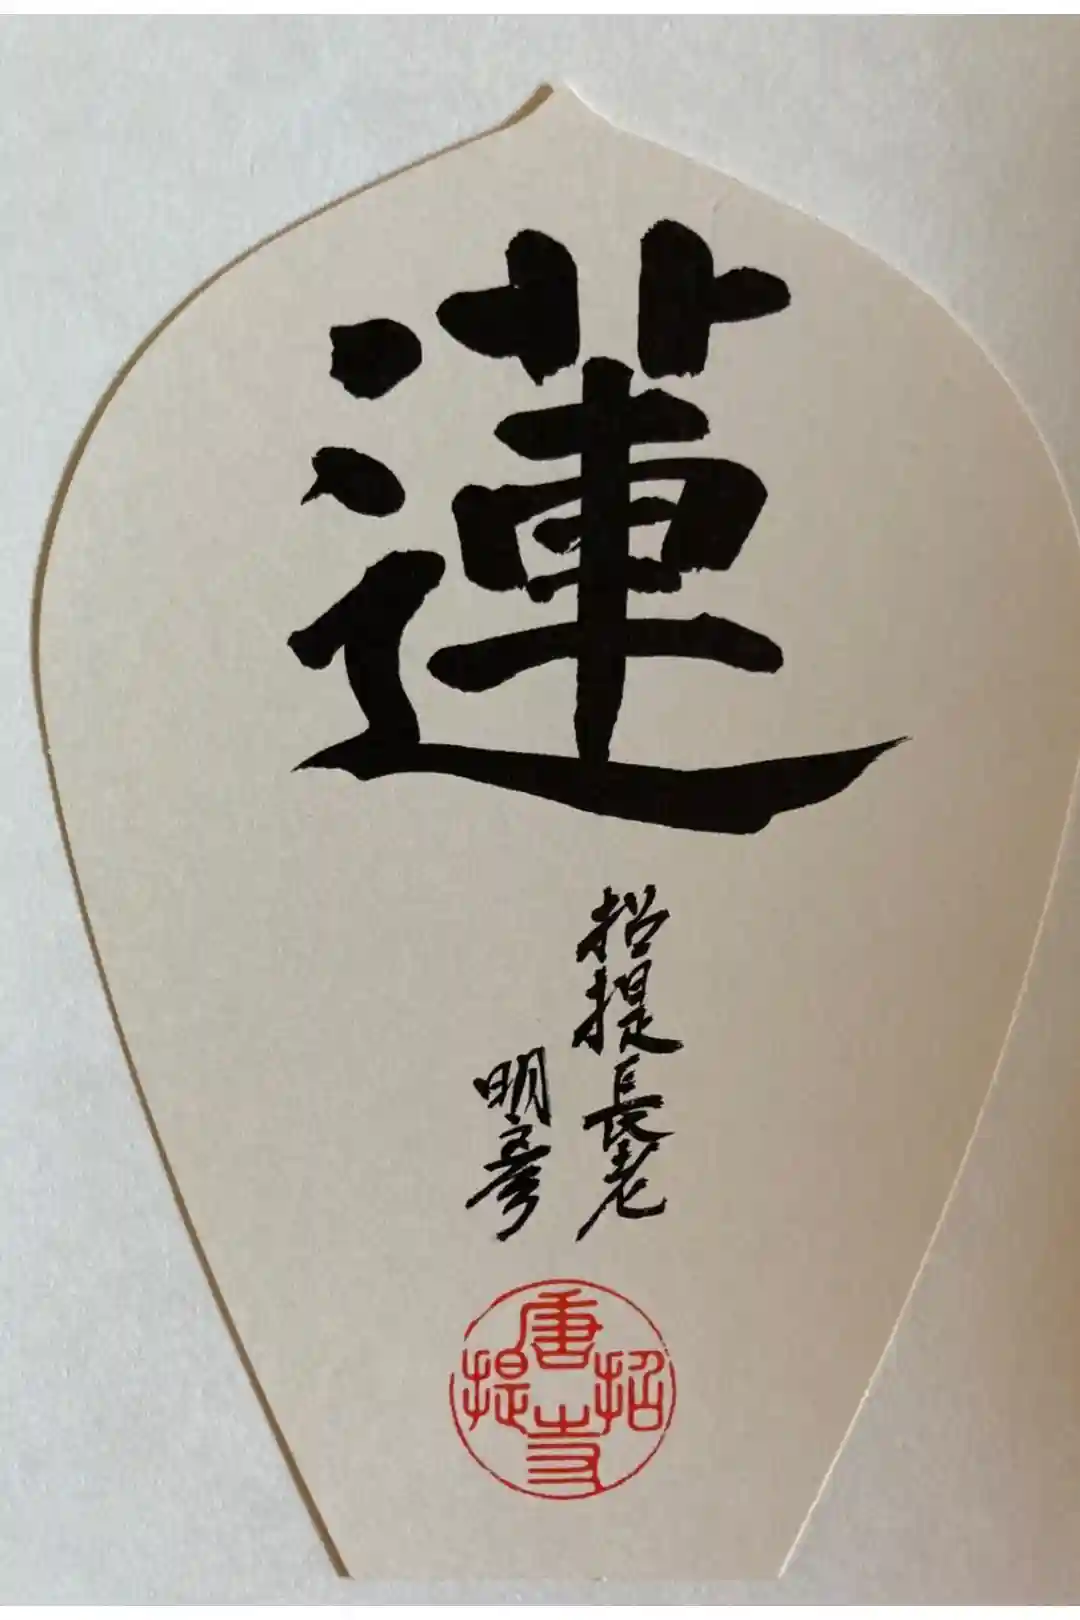 蓮
招提長老
明彦
唐招提寺